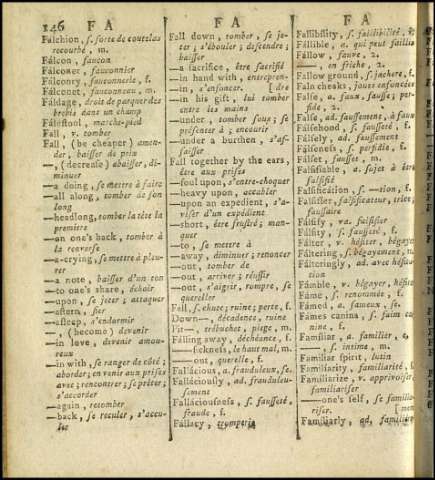 146 F A
F A
F A
Fálchion, ſ. ſorte de coutelas
recourbé, m.
Fálcon, faucon
Fálconer, fauconnier
Fálconry, fauconnerie, f.
Fálconet, fauconneau, m.
Fáldage, droit de parquer des
brebis dans un champ
Fáldſtool, marche-pied
Fall, v. tomber
Fall, (be cheaper) amen-
der, baiſſer de prix
—, (decreaſe) abaiſſer, di-
minuer
—a doing, ſe mettre à faire
—all along, tomber de ſon
long
—headlong, tomber la tête la
première
—an one's back, tomber à
la renverſe
—a-crying, ſe mettre à pleu-
rer
—a note, baiſſer d'un ton
—to one's share, échoir
—upon, ſe jeter; attaquer
—aſtern, ſier
—aſleep, s'endormir
—, (become) devenir
—in love, devenir amou-
reux
—in with, ſe ranger de côté;
aborder; en venir aux priſes
avec; rencontrer; ſe prêter;
s'accorder
—again, retomber
—back, ſe reculer, s'accu-
ler
Fall down, tomber, ſe je-
ter; s'ébouler; deſcendre;
baiſſer
—a ſacrifice, être ſacrifié
—in hand with, entrepren-
—in, s'enfoncer. [dre
—in his gift, lui tomber
entre les mains
—under, tomber ſous; ſe
préſenter à; encourir
—under a burthen, s'af-
faiſſer
Fall together by the ears,
être aux priſes
—foul upon, s'entre-choquer
—heavy upon, accabler
—upon an expedient, s'a-
viſer d'un expédient
—short, être fruſtré; man-
quer
—to, ſe mettre à
—away, diminuer; renoncer
—out, tomber de
—out, arriver; réuſſir
—out, s'aigrir, rompre, ſe
quereller
Fell, ſ. chute; ruine; perte, f.
Down—, décadence, ruine
Pit—, trébuchet, piege, m.
Fálling away, déchéance, f.
—ſickneſs, le haut mal, m.
—out, querelle, f.
Fallácious, a. frauduleux, ſe.
Falláciouſly, ad. frauduleu-
ſement
Falláciouſneſs, ſ. fauſſeté,
fraude, f.
Fállacy, tromperie
Fallibílity, ſ. faillibilité, f.
Fállible, a. qui peut faillir
Fállow, fauve, 2.
—, en friche, 2.
Fallow ground, ſ. jachere, f.
Faln cheeks, joues enfoncées
Falſe, a. faux, fauſſe; per-
fide, 2.
Falſe, ad. fauſſement, à faux
Fálſehood, ſ. fauſſeté, f.
Fálſely, ad. fauſſement
Fálſeneſs, ſ. perfidie, f.
Fálſet, fauſſet, m.
Fálſifiable, a. ſujet à être
falſifié
Falſificátion, ſ. —tion, f.
Fálſifier, falſificateur, trice;
fauſſaire
Fálſify, va. falſifier
Fálſity, ſ. fauſſeté, f.
Fálter, v. héſiter, bégayer
Fáltering, ſ. bégayement, m.
Fálteringly, ad. avec héſita-
tion
Fámble, v. bégayer, héſiter
Fáme, ſ. renommée, f.
Fámed, a. fameux, ſe.
Fámes canina, ſ. faim ca-
nine, f.
Familiar, a. familier, e,
—, ſ. intime, m.
Familiar ſpirit, lutin
Familiárity, familiarité, f.
Familiarize, v. apprivoiſer,
familiariſer
—one's ſelf, ſe familia-
riſer. [ment
Familiarly, ad. familiere-